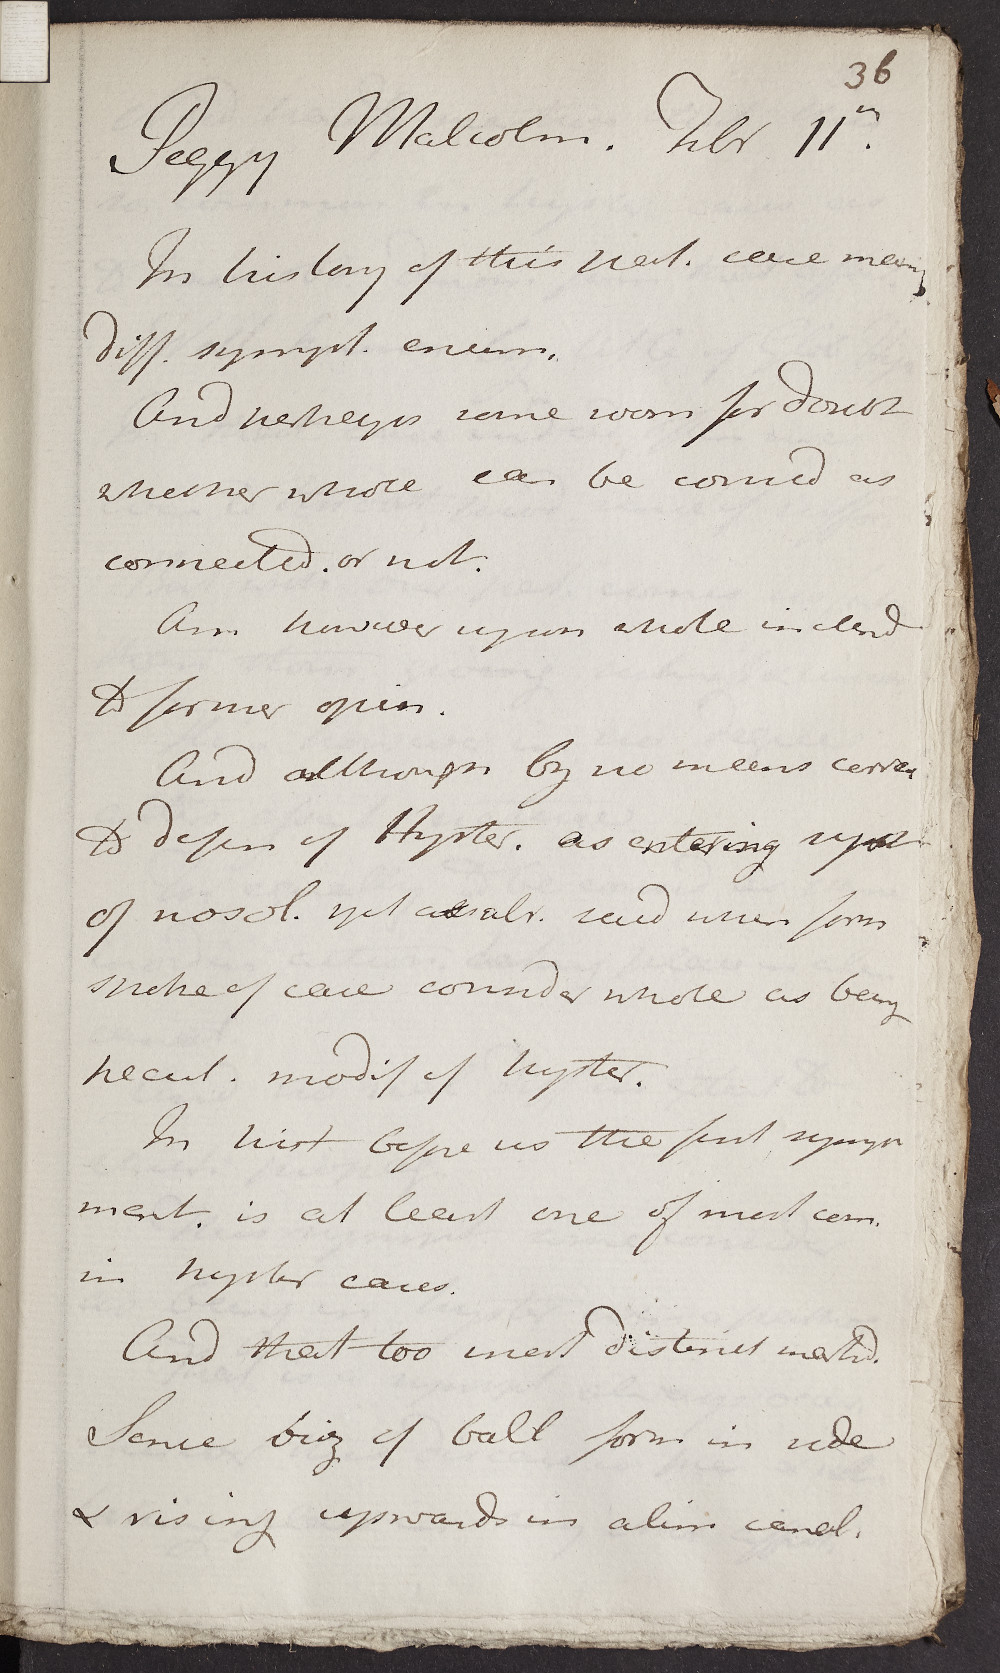 36
Peggy Malcolm. Febr 11th.
In history of this pat. case many
diff. sympt. enum.
And perhaps some room for doubt
whether whole can be consid as
connected. or not.
Am however upon whole inclend
to former opin.
And although by no means
to defin of Hyster. as entering syst
of nosol. yet said when form
spoke of case consider whole as being
pecul. modif of hyster.
In hist before us the first sympt
ment. is at least one of most com.
in hyster cases.
And that too most distinct markd.
Sense big of ball form in side
& rising upwards in alim canal.